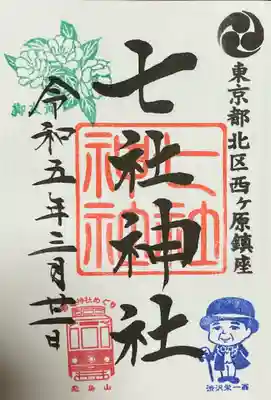 東京都北区西ヶ原鎮座
七社神社
七社神社
令和五年三月廿一日
神社めぐり
飛鳥山
渋沢栄一翁